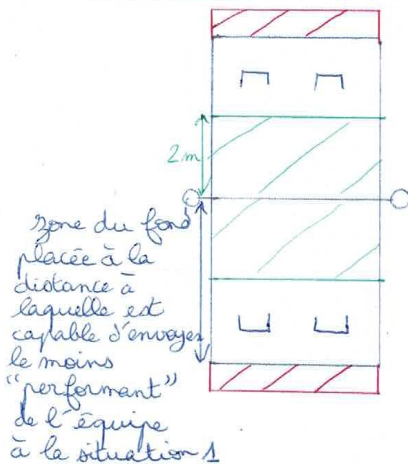 2m
zone du fond
placée à la
distance à
laquelle est
capable d'envoyer
le moins
"performant"
de l'équipe
à la situation 1